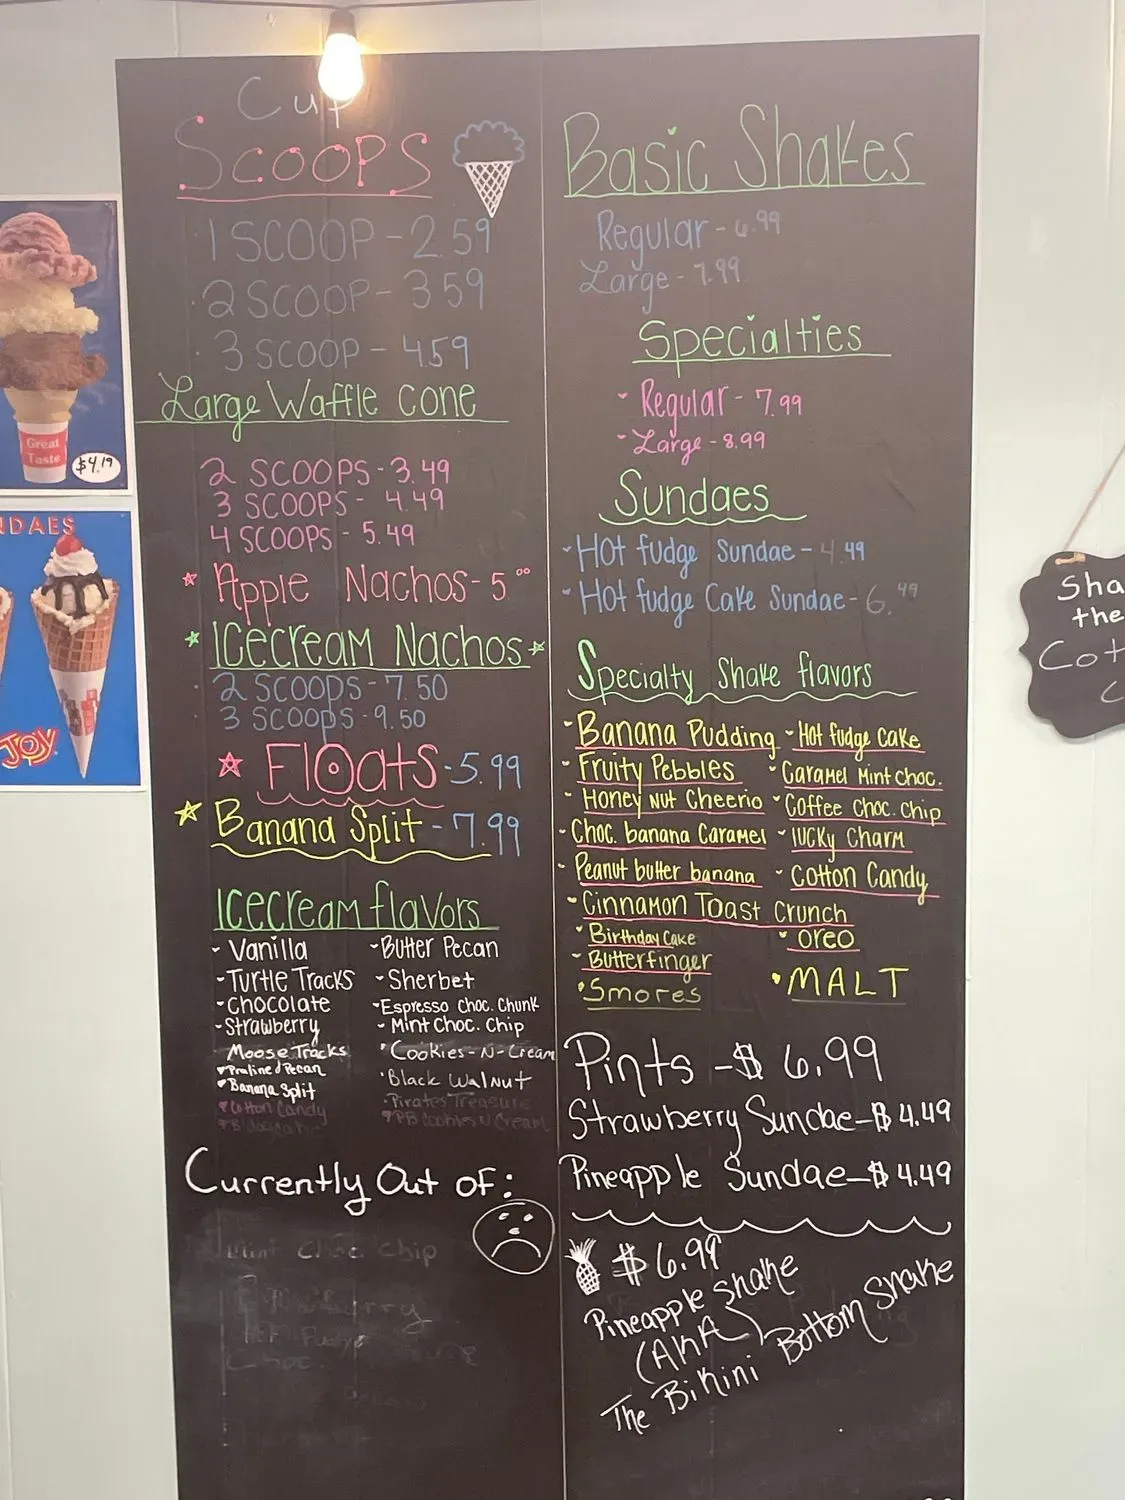 Cup
Scoops
1 SCOOP - 2.59
2 SCOOP - 3.59
3 SCOOP - 4.59
Large Waffle cone
2 SCOOPS - 3.49
3 SCOOPS - 4.49
4 SCOOPS - 5.49
Apple Nachos - 5.00
Icecream Nachos
2 SCOOPS - 7.50
3 SCOOPS - 9.50
Floats - 5.99
Banana Split - 7.99
Icecream flavors
- Vanilla
- Turtle Tracks
- Chocolate
- Strawberry
Moose Tracks
Praline & Pecan
Banana Split
Cotton Candy
- Butter Pecan
- Sherbet
- Espresso Choc. Chunk
- Mint Choc. Chip
Cookies-N-Cream
Black Walnut
Pirates Treasure
PB Cookies N Cream
Currently Out of:
Mint Choc Chip
Basic Shakes
Regular - 6.99
Large - 7.99
Specialties
- Regular - 7.99
- Large - 8.99
Sundaes
- Hot fudge Sundae - 4.49
- Hot fudge Cake Sundae - 6.49
Specialty Shake flavors
- Banana Pudding
- Fruity Pebbles
- Honey Nut Cheerio
- Choc. banana Caramel
- Peanut butter banana
- Cinnamon Toast Crunch
- Birthday Cake
- Butterfinger
Smores
- Hot fudge Cake
- Caramel Mint Choc.
- Coffee Choc. Chip
- lucky Charm
- Cotton Candy
- oreo
MALT
Pints - $ 6.99
Strawberry Sundae - $ 4.49
Pineapple Sundae - $ 4.49
$ 6.99
Pineapple Shake
(AKA)
The Bikini Bottom Shake
Great
Taste
$4.19
NDAES
JOY
Sha
the
Cot
C